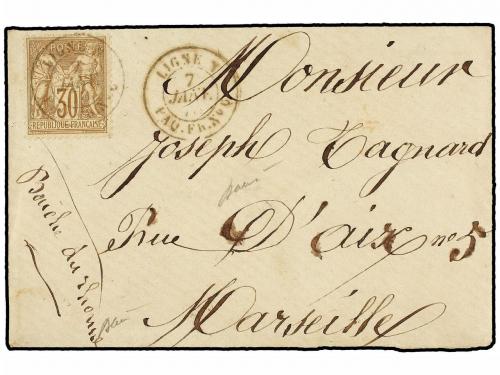 POSTE
30
REPUBLIQUE FRANÇAISE
LIGNE
7
JANV.
PAQ. FR. N
Monsieur
Joseph Tagnard
Rue D'aix no 5
Marseille
Bouche du Rhone